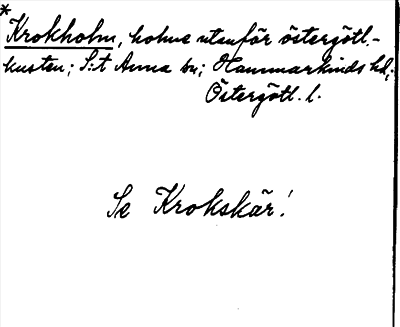 *
Krokholm, holme utanför östergötl.-
kusten; S:t Anna sn; Hammarkinds hd;
Östergötl. l.
Se Krokskär!